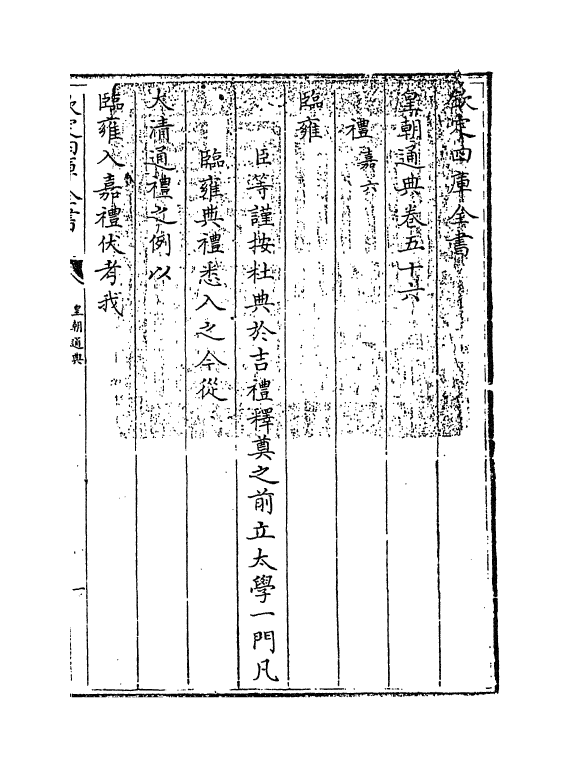 欽定四庫全書
皇朝通典卷五十六
禮嘉六
臨雍
臣等謹按杜典於吉禮釋奠之前立太學一門凡
臨雍典禮悉入之今從
大清通禮之例以
臨雍入嘉禮伏考我
欽定四庫全書
皇朝通典
一